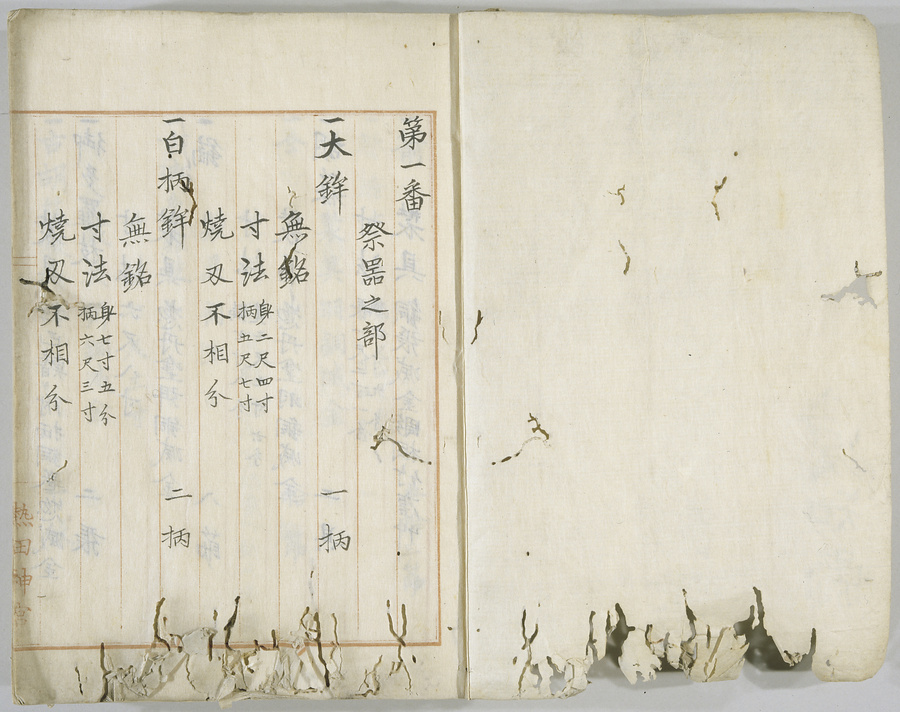 第一番
祭器之部
一大鉾 一柄
無銘
寸法 身二尺四寸 柄五尺七寸
燒刃不相分
一白柄鉾 二柄
無銘
寸法 身七寸五分 柄六尺三寸
燒刃不相分
熱田神宮